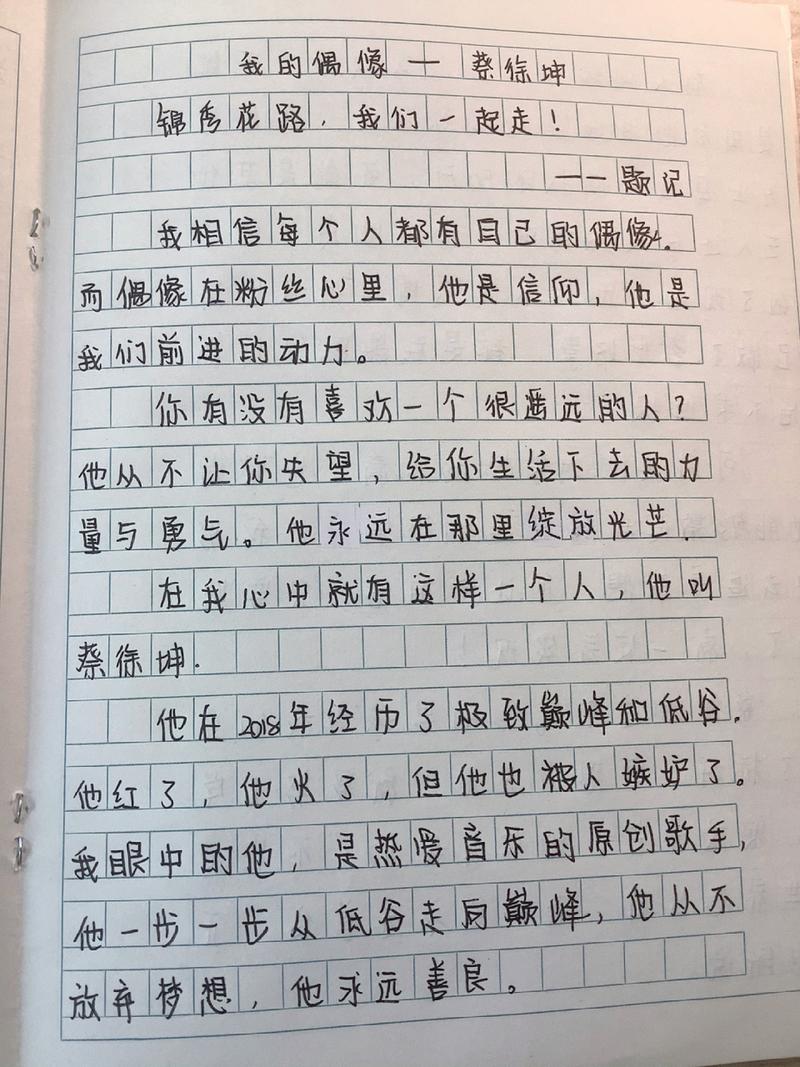 我的偶像一蔡徐坤
锦秀花路，我们一起走！
——题记
我相信每个人都有自己的偶像.
而偶像在粉丝心里，他是信仰，他是
我们前进的动力。
你有没有喜欢一个很遥远的人？
他从不让你失望，给你生活下去的力
量与勇气。他永远在那里绽放光芒.
在我心中就有这样一个人，他叫
蔡徐坤.
他在2018年经历了极致巅峰和低谷.
他红了，他火了，但他也被人嫉妒了。
我眼中的他，是热爱音乐的原创歌手，
他一步一步从低谷走向巅峰，他从不
放弃梦想，他永远善良。